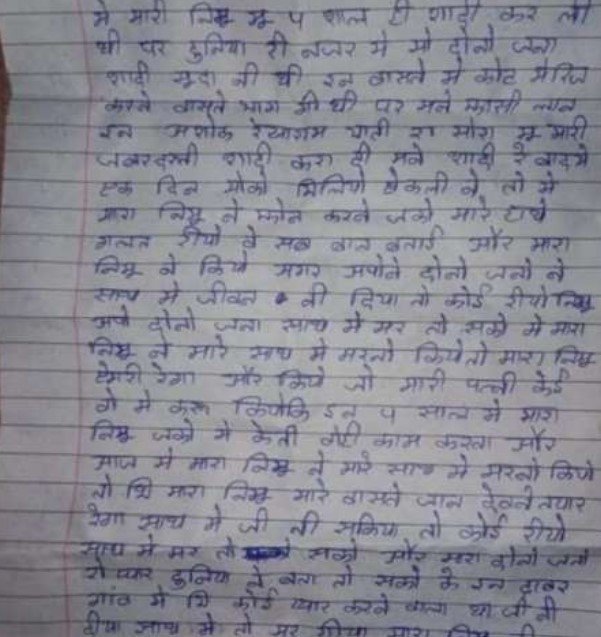 मे मारी निम्बू मू प साल ही शादी कर ली
थी पर दुनिया री नजर मे मो दोनो जना
शादी सुदा नी थी इन वास्ते मे कोट मेरिज
करने वास्ते भाग गी थी पर मने फासी लान
इन अशोक रेयाराम पाती रा मोरा मू मारी
जबरदस्ती शादी करा दी मने शादी रे बाद मे
एक दिन मोको मिलियो ऐकली ने तो मे
मारा निम्बू ने फोन करने जको मारे हाथे
गलत रीयो वे सब बात बताई और मारा
निम्बू ने कियो अगर अपोने दोनो जनो ने
साथ मे जीवन नी दिया तो कोई रीयो निम्बू
अपो दोनो जना साथ मे मर तो सको मे मारा
निम्बू ने मारे साथ मे मरनो कियो तो मारा निम्बू
रेगा और कियो जो मारी पत्नी केई
वो मे करू कियोकि इन प साल मे मारा
निम्बू जको मे केती वोही काम करता और
आज मे मारा निम्बू ने मारे साथ मे मरनो कियो
तो भि मारा निम्बू मारे वास्ते जान देवने तयार
रेगा साथ मे जी नी सकिया तो कोई रीयो
साथ मे मर तो सको और मारा दोनो जनो
रो प्यार दुनिया ने बता तो सको के इन
गांव मे भि कोई प्यार करने वाला था जी नी
साथ मे तो मर गीया मारा